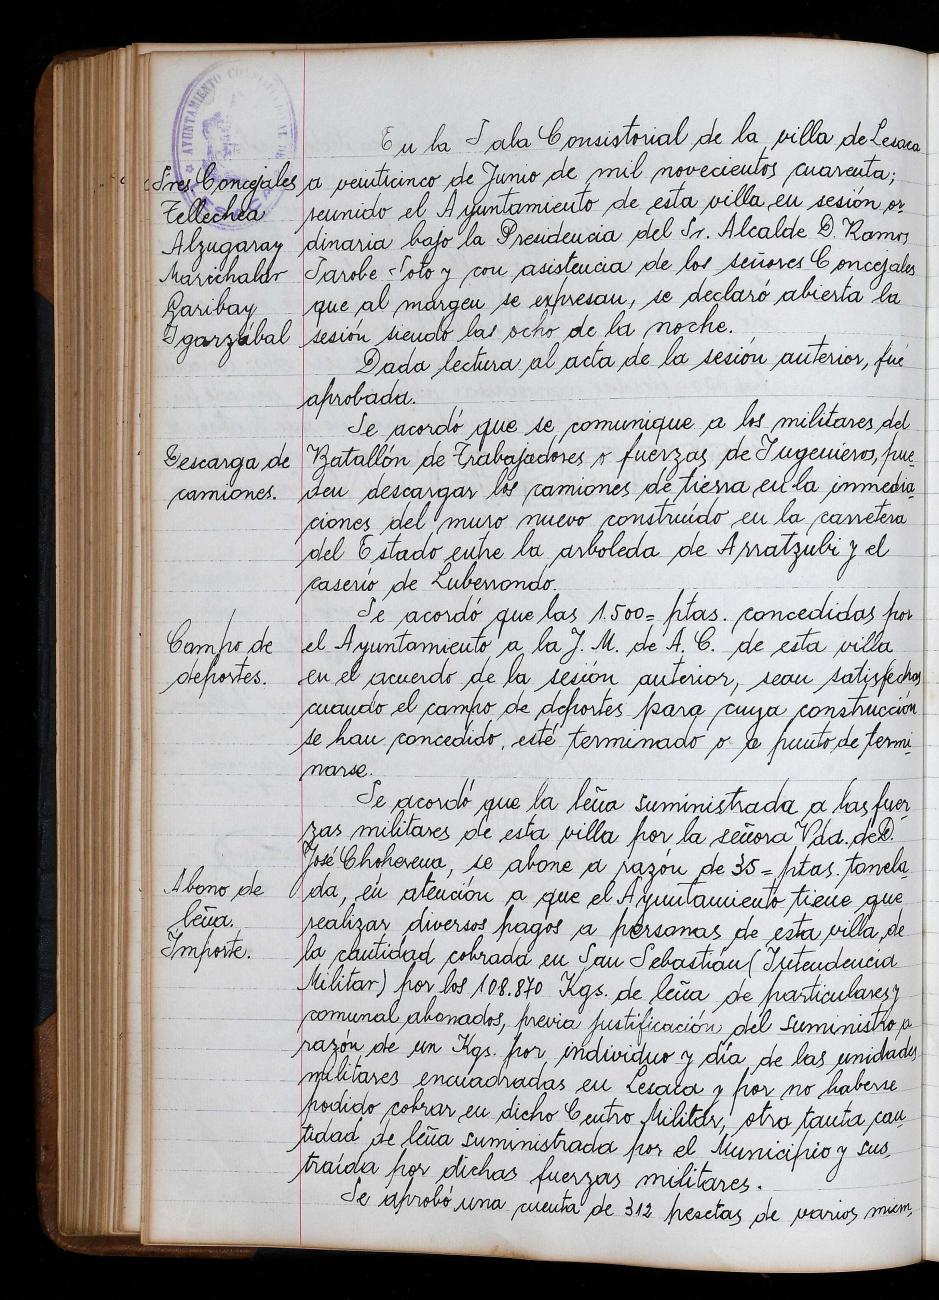 AYUNTAMIENTO CONSTITUCIONAL DE
Sres. Concejales
Tellechea
Alzugaray
Marichalar
Garibay
Igarzabal
En la Sala Consistorial de la villa de Lesaca
a veinticinco de Junio de mil novecientos cuarenta;
reunido el Ayuntamiento de esta villa en sesión or-
dinaria bajo la Presidencia del Sr. Alcalde D. Ramos
Tarobe Soto y con asistencia de los señores Concejales
que al margen se expresan, se declaró abierta la
sesión siendo las ocho de la noche.
Dada lectura al acta de la sesión anterior, fué
aprobada.
Descarga de
camiones.
Se acordó que se comunique a los militares del
Batallón de Trabajadores o fuerzas de Ingenieros, pue-
den descargar los camiones de tierra en la inmedia-
ciones del muro nuevo construído en la carretera
del Estado entre la arboleda de Arratzubi y el
caserío de Luberrondo.
Campo de
deportes.
Se acordó que las 1.500= ptas. concedidas por
el Ayuntamiento a la J. M. de A. C. de esta villa
en el acuerdo de la sesión anterior, sean satisfechas
cuando el campo de deportes para cuya construcción
se han concedido, esté terminado o a punto de termi-
narse.
Abono de
leña.
Importe.
Se acordó que la leña suministrada a las fuer-
zas militares de esta villa por la señora Vda. de D.
José Choherena, se abone a razón de 35= ptas. tonela-
da, en atención a que el Ayuntamiento tiene que
realizar diversos pagos a personas de esta villa, de
la cantidad cobrada en San Sebastián (Intendencia
Militar) por los 108.870 Kgs. de leña de particulares y
comunal abonados, previa justificación del suministro a
razón de un Kgs. por individuo y día de las unidades
militares encuadradas en Lesaca y por no haberse
podido cobrar en dicho Centro Militar, otra tanta can-
tidad de leña suministrada por el Municipio y sus-
traída por dichas fuerzas militares.
Se aprobó una cuenta de 312 pesetas de varios miem-